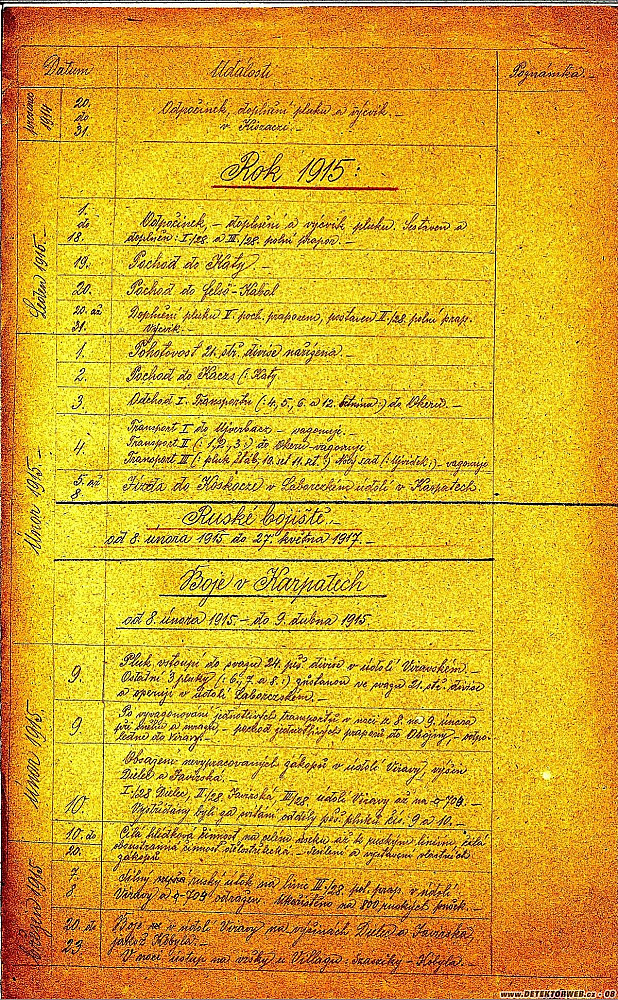 Datum Události Poznámka.-
prosinec 1914
20. do 31.
Odpočinek, doplnění pluku a výcvik.-
v Kiszaczi.-
Rok 1915:
Leden 1915.-
1. do 18.
Odpočinek, - doplnění a výcvik pluku. Sestaven a
doplněn: I./28. a III./28. polní prapor.-
19. Pochod do Katy.-
20. Pochod do Felsö-Kabol
20. až 31.
Doplnění pluku V. poch. praporem, postaven II./28. polní prap.
Výcvik.-
Únor 1915.-
1. Pohotovost 21. stř. divise nařízena.-
2. Pochod do Kacz (: Katy
3. Odchod I. Transportu (: 4., 5., 6. a 12. :) do Okeru.-
4. Transport I do Ujverbacz - vagonuje.-
Transport II (: 1., 2., 3. :) do Okeru-vagonuje
Transport III (: pluk. štáb, 10. set. 11. st. :) Nový sad (: Ujvidek :) - vagonuje
5. až 8.
Jízda do Koskocze v Laborczkém údolí v Karpatech
Ruské bojiště.-
od 8. února 1915 do 27. května 1917.-
Boje v Karpatech
od 8. února 1915.- do 9. dubna 1915.
Únor 1915
9. Pluk vstoupí do svazu 24. pěš. divise v údolí Viravském.-
Ostatní 3 pluky (: 6., 7. a 8. :) zůstanou ve svazu 21. stř. divise
a operují v údolí Laborczském.-
9. Po vyvagonování jednotlivých transportů v noci z 8. na 9. února
při sněhu a mrazech, - pochod jednotlivých praporů do Obojny, - odpo-
ledne do Viravy.-
10. Obsazení nevypracovaných zákopů v údolí Viravy, výšin
Dielec a Javirská.-
I./28 Dielec, II./28. Javirská, III/28 údolí Viravy až na 709.-
Vystřídány byly za svítání oddíly pěš. pluku čís. 9 a 10.-
10. do 20.
Čilá hlídková činnost na celém úseku až k ruským liniím, čilá
oboustranná činnost dělostřelecká.- Sesílení a výstavení vlastních
zákopů
Březen 1915
7. 8.
Silný ruský útok na linie III/28. pol. prap. v údolí
Viravy a 709 odražen. Ukořistěno na 800 ruských pušek.-
20. do 23.
Boje v údolí Viravy na výšinách Dielec a Javirská,
jakož Kobyla.-
V noci ústup na výšky u Villagu: Szászíky - Kobyla.-
www.DETEKTORWEB.cz - 08